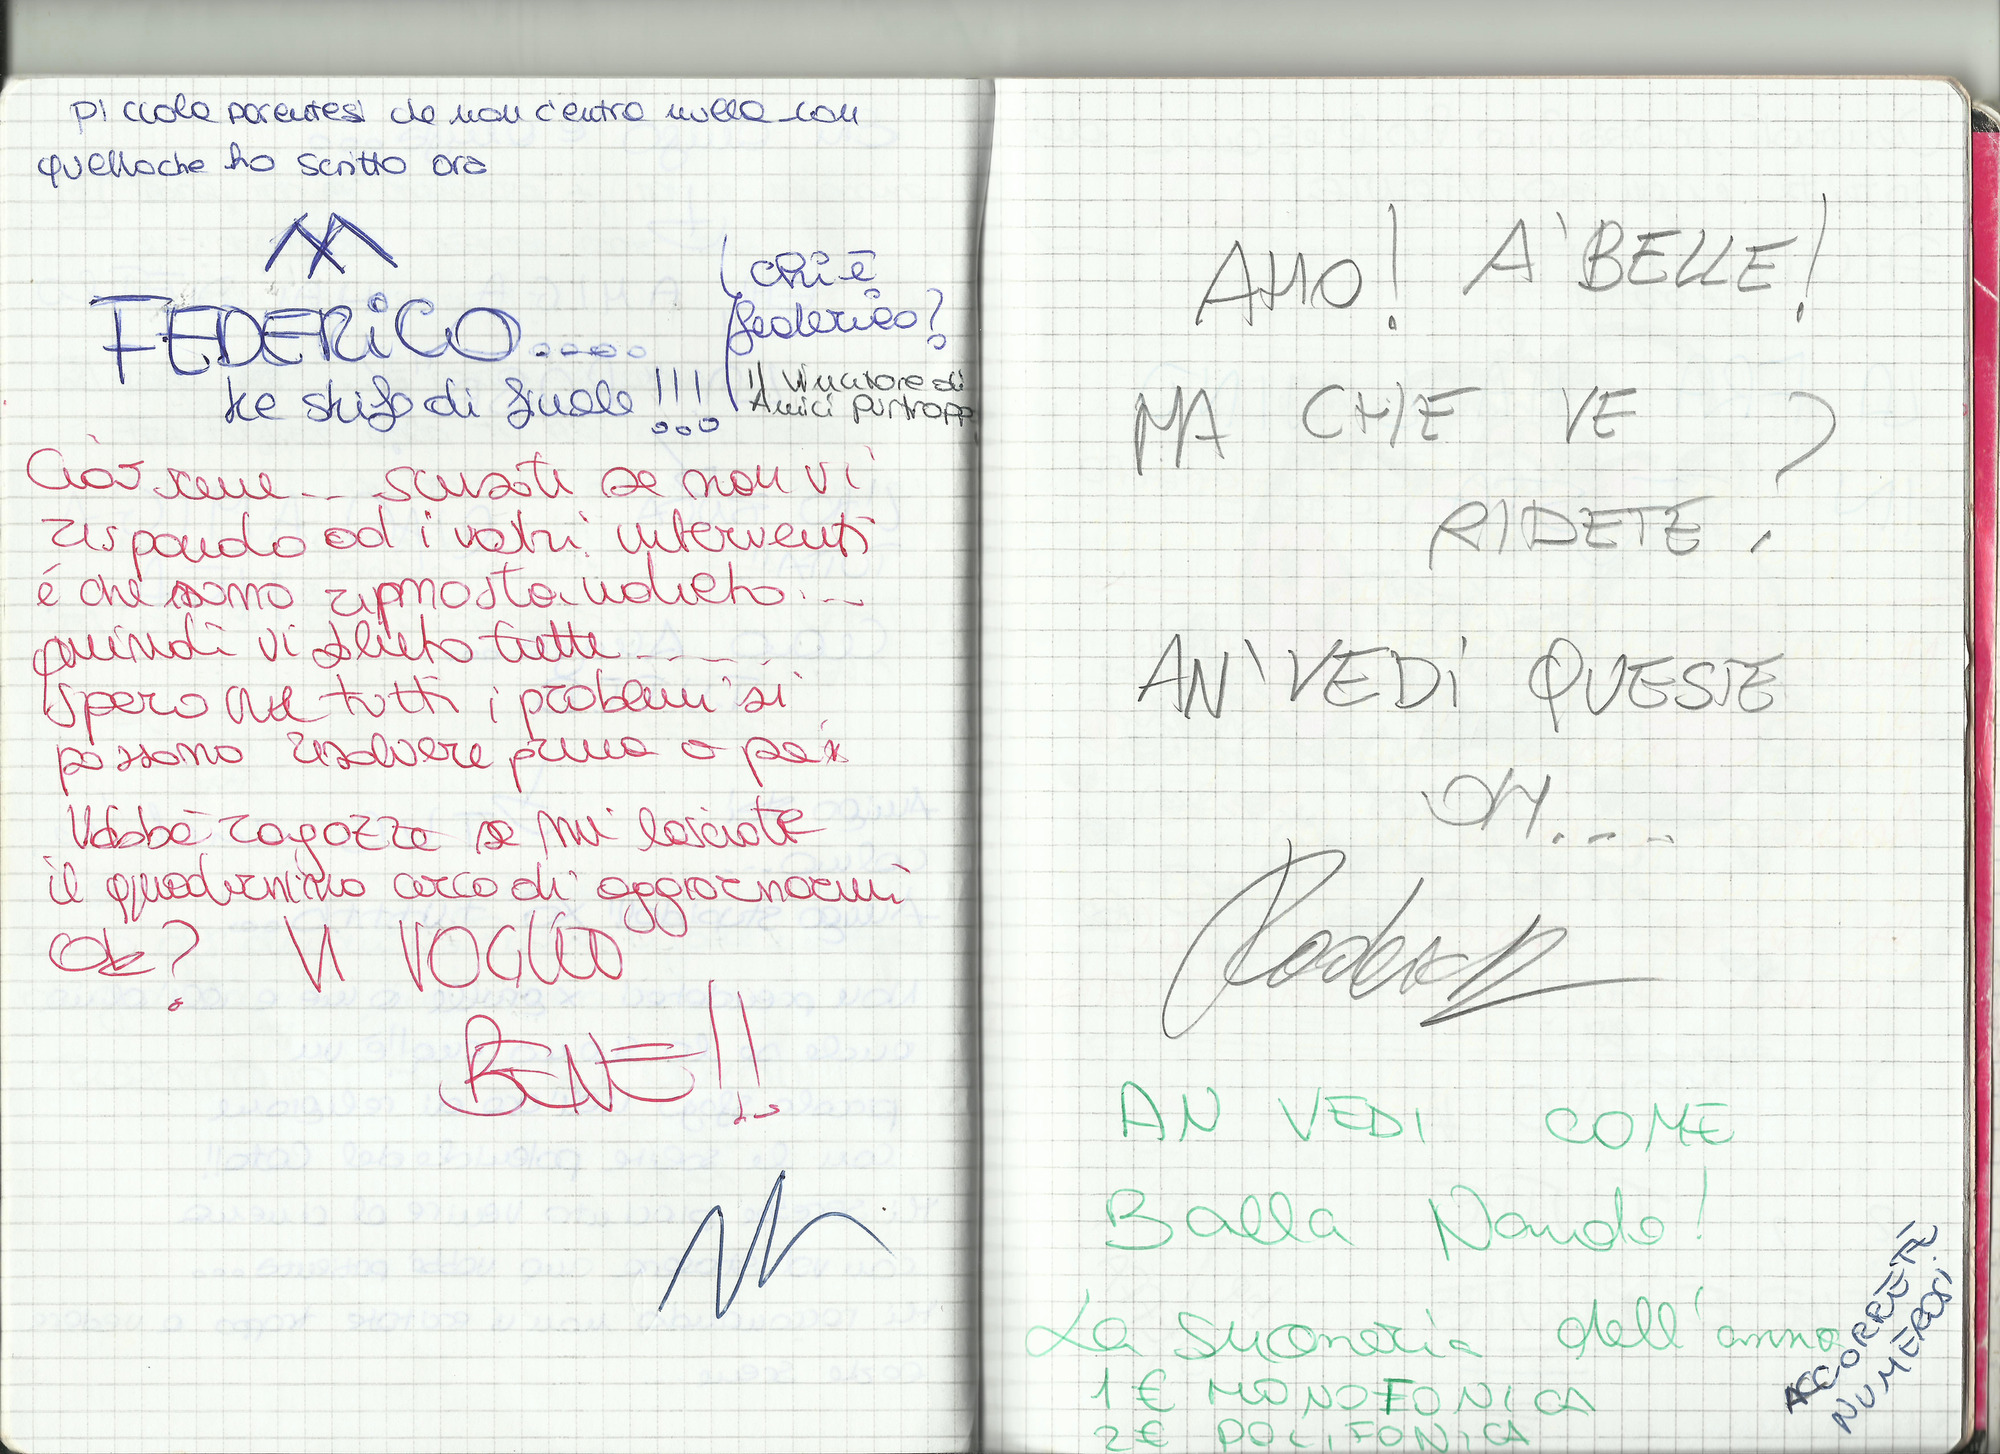 Piccola parentesi che non c'entra nulla con
quello che ho scritto ora
FEDERICO....
ke skifo di finale!!!
(chi è
federico?
il vincitore di
Amici purtroppo
Ciao scene... scusate se non vi
rispondo ad i vostri interventi
è che sono rimasta indietro...
quindi vi saluto tutte...
spero che tutti i problemi si
possano risolvere prima o poi
Vabbè ragazze se mi lasciate
il quadernino cerco di aggiornarmi
ok? VI VOGLIO
BENE!!
AHO! A' BELLE!
MA CHE VE
RIDETE?
AN'VEDI QUESTE
OH....
AN VEDI COME
Balla Nando!
La suoneria dell'anno
1€ MONOFONICA
2€ POLIFONICA
ACCORRETE
NUMEROSI.